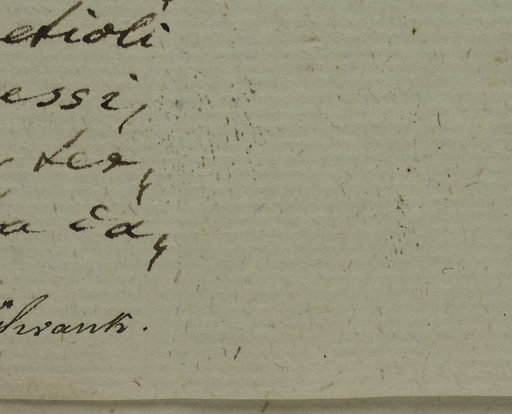 etioli
essi,
ter,
ia ea,
Schrank.